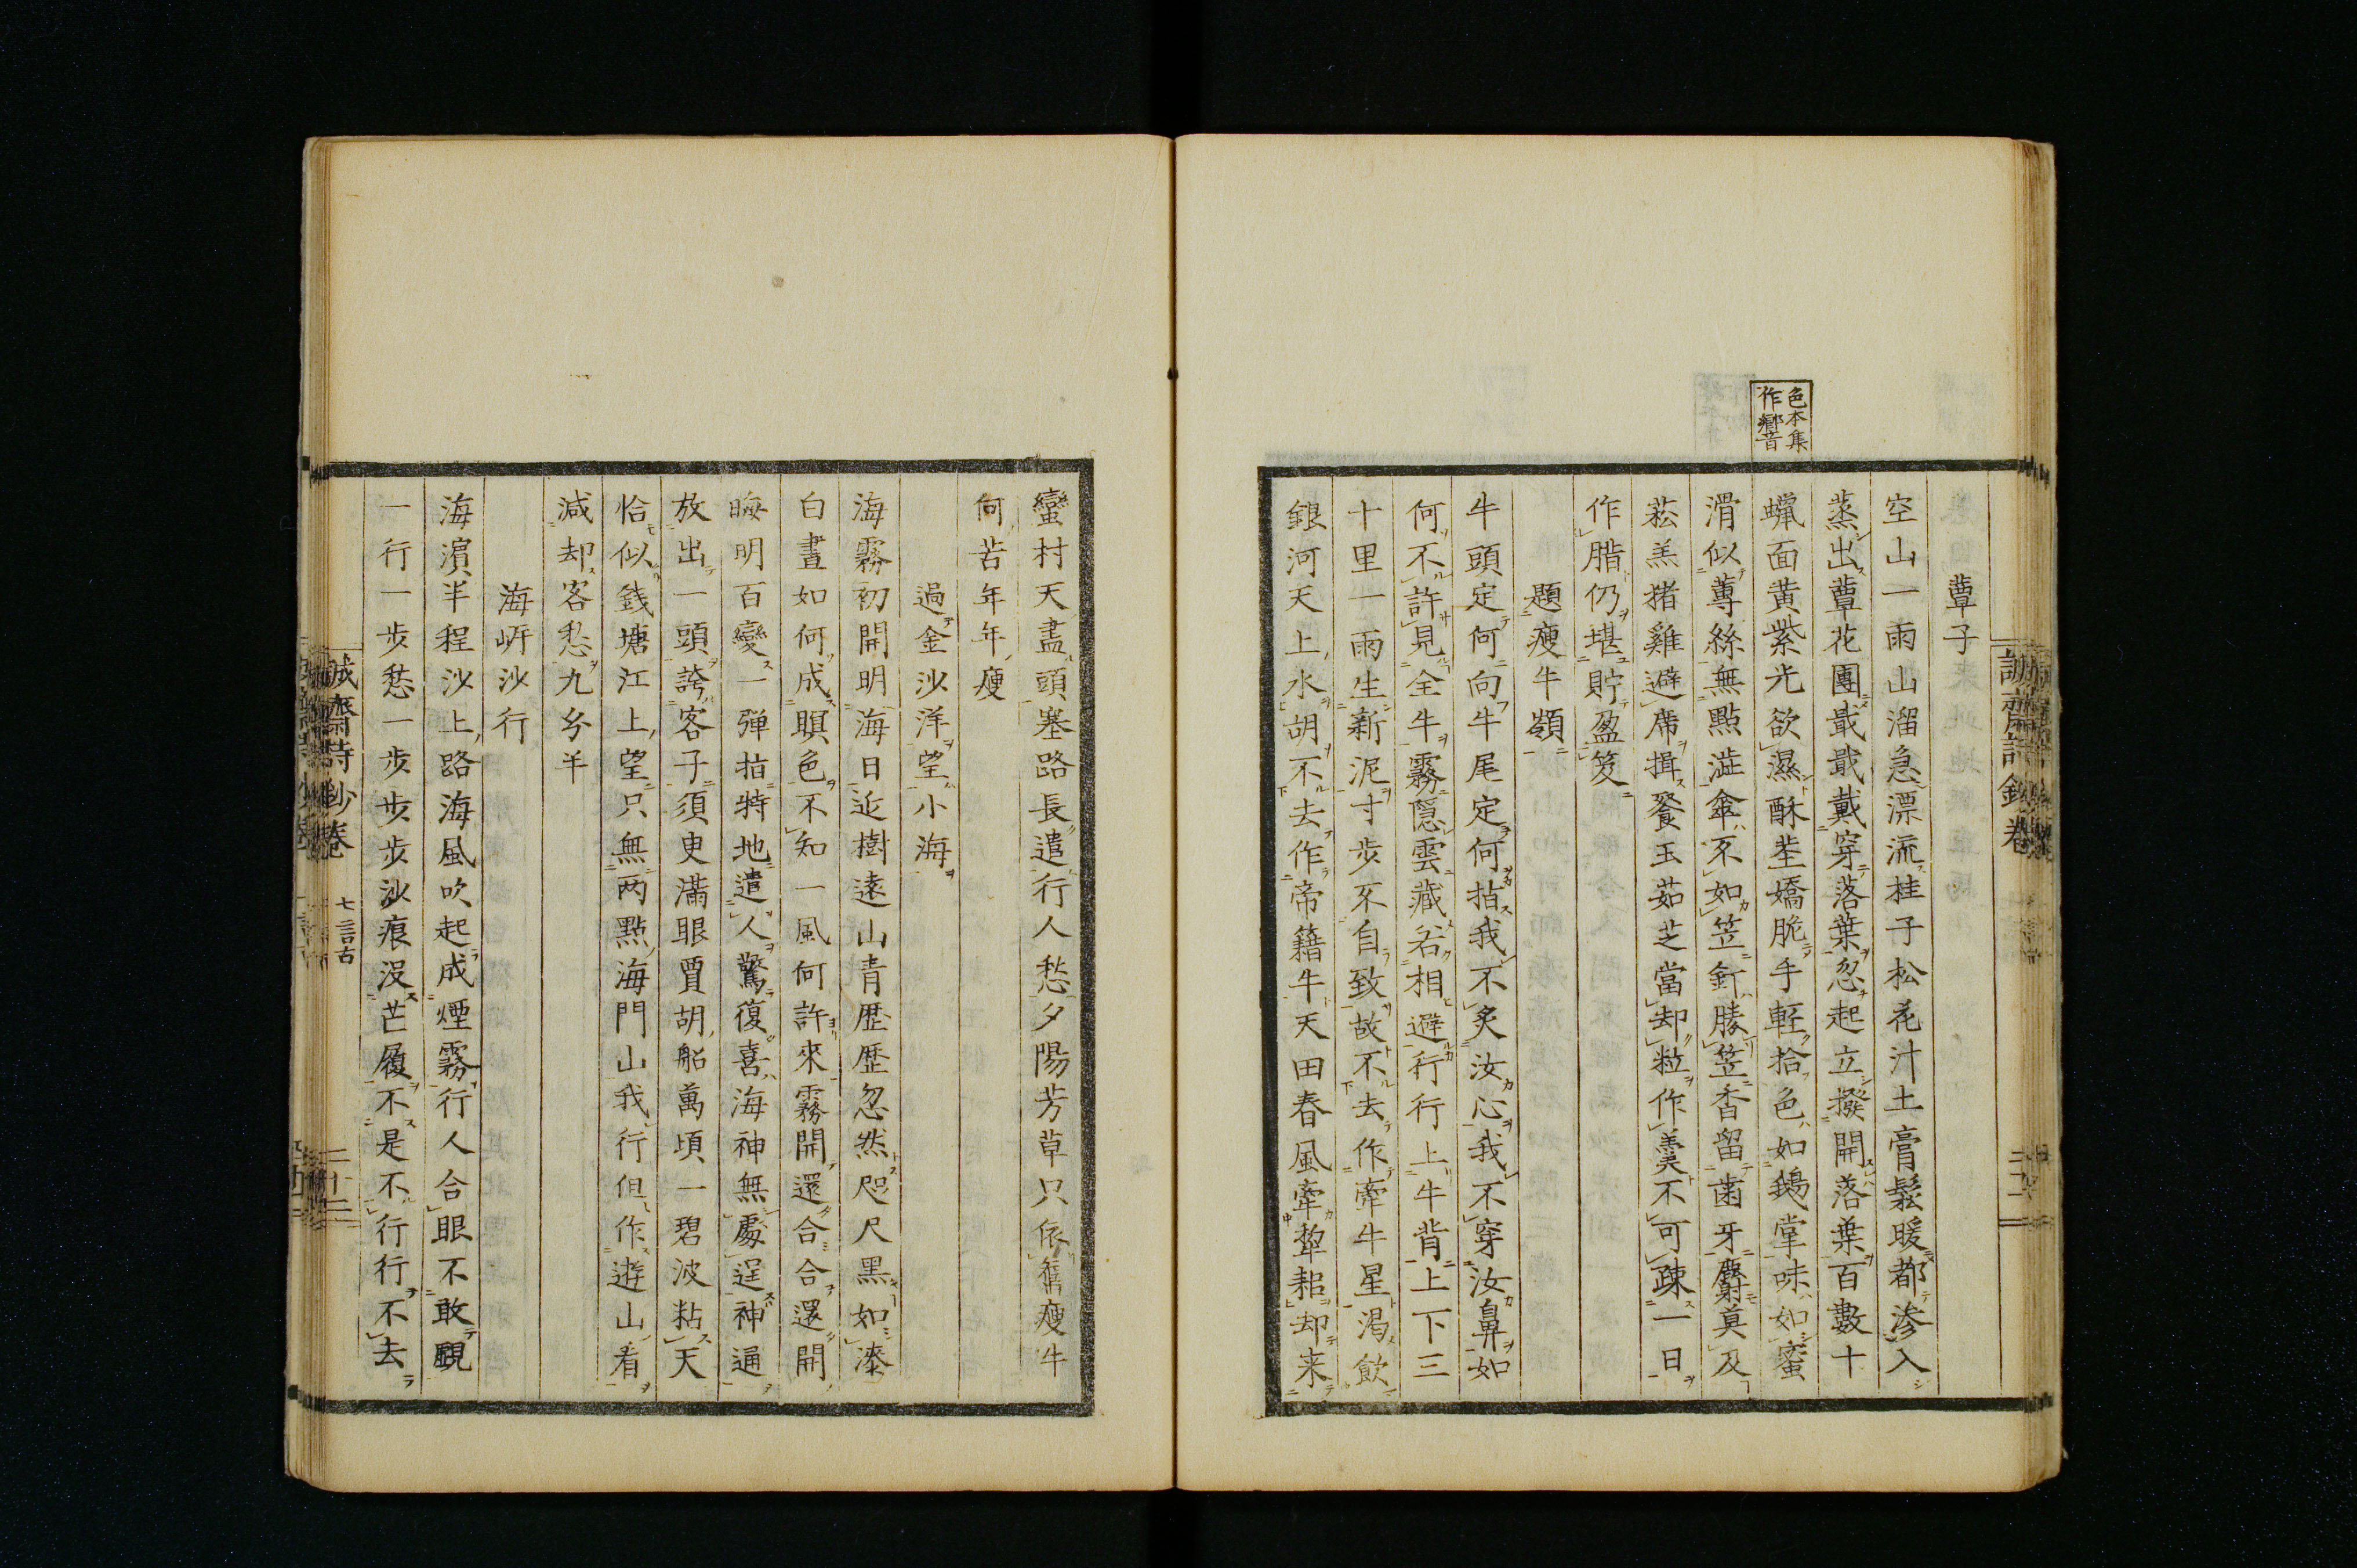 色本集
作響
蕈子
空山一雨山溜急漂流桂子松花汁土膏鬆暖都滲入
蒸出蕈花團戢戢戴穿落葉忽起立撥開落葉百數十
蠟面黄紫光欲濕酥莖嬌脆手輕拾色如鵝掌味如蜜
滑似蓴絲無點澁傘不如笠釘勝笠香留齒牙麝莫及
菘羔猪雞避席揖餐玉茹芝當却粒作羹不可疎一日
作腊仍堪貯盈笈
題瘦牛嶺
牛頭定何向牛尾定何指我不炙汝心我不穿汝鼻如
何不許見全牛霧隠雲藏若相避行行上牛背上下三
十里一雨生新泥寸步不自致故不去作牽牛星渴飲
銀河天上水胡不去作帝籍牛天田春風牽犂耜却来
蠻村天盡頭塞路長遣行人愁夕陽芳草只依舊瘦牛
何苦年年瘦
過金沙洋望小海
海霧初開明海日近樹遠山青歴歴忽然咫尺黒如漆
白晝如何成瞑色不知一風何許來霧開還合合還開
晦明百變一彈指特地遣人驚復喜海神無處逞神通
放出一頭誇客子須臾滿眼賈胡船萬頃一碧波粘天
恰似錢塘江上望只無两點海門山我行但作遊山看
減却客愁九分半
海岍沙行
海濵半程沙上路海風吹起成煙霧行人合眼不敢覷
一行一步愁一步步步沙痕没芒履不是不行行不去
誠齋詩鈔巻
七言古
二十二